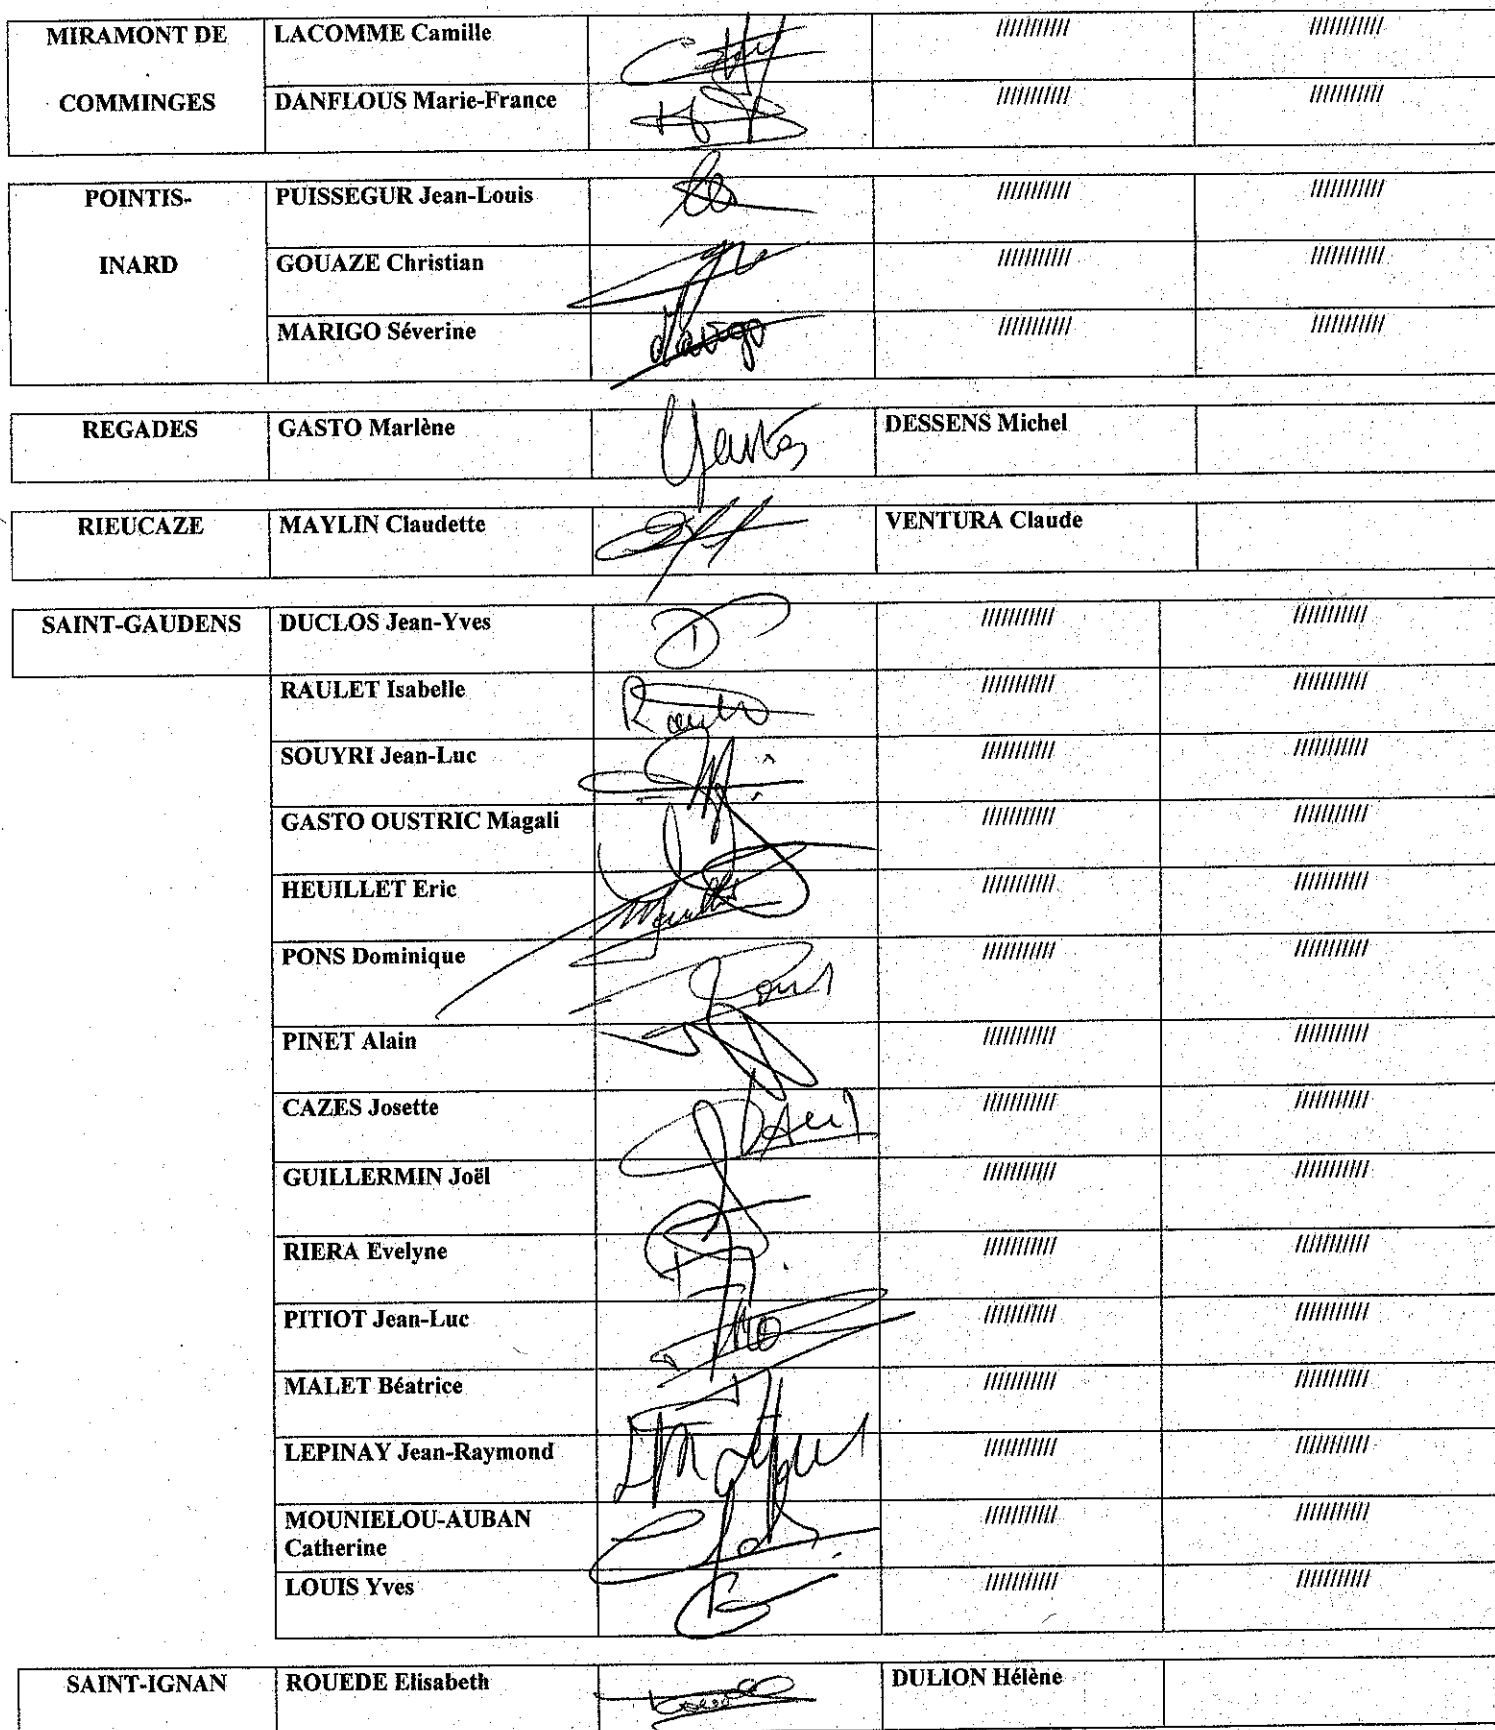 MIRAMONT DE COMMINGES
LACOMME Camille //////////// ////////////
DANFLOUS Marie-France //////////// ////////////
POINTIS-INARD
PUISSEGUR Jean-Louis //////////// ////////////
GOUAZE Christian //////////// ////////////
MARIGO Séverine Marigo //////////// ////////////
REGADES GASTO Marlène DESSENS Michel
RIEUCAZE MAYLIN Claudette VENTURA Claude
SAINT-GAUDENS DUCLOS Jean-Yves //////////// ////////////
RAULET Isabelle //////////// ////////////
SOUYRI Jean-Luc //////////// ////////////
GASTO OUSTRIC Magali //////////// ////////////
HEUILLET Eric //////////// ////////////
PONS Dominique //////////// ////////////
PINET Alain //////////// ////////////
CAZES Josette //////////// ////////////
GUILLERMIN Joël //////////// ////////////
RIERA Evelyne //////////// ////////////
PITIOT Jean-Luc //////////// ////////////
MALET Béatrice //////////// ////////////
LEPINAY Jean-Raymond //////////// ////////////
MOUNIELOU-AUBAN //////////// ////////////
Catherine
LOUIS Yves //////////// ////////////
SAINT-IGNAN ROUEDE Elisabeth DULION Hélène